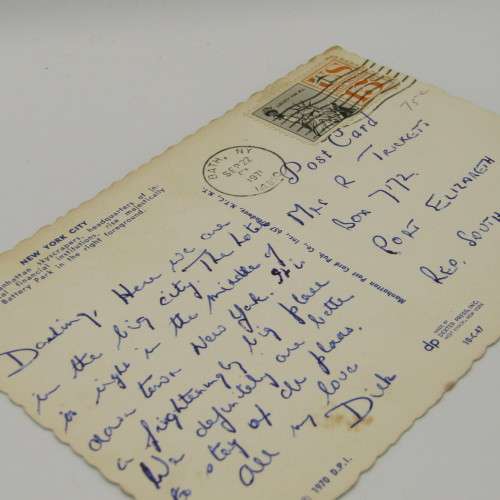 NEW YORK CITY
Manhattan skyscrapers, headquarters of
financial institutions, rise majestically
Battery Park in the right foreground.
Darling, Here we are
in the big city. The hotel
is right in the middle of
down town New York. It is
a frighteningly big place
We definitely are better
to stay at the place.
All my love
Dick
© 1970 D.P.I.
Manhattan Post Card Pub. Co., Inc.
BATH, NY
SEP 22
PM
1971
Post Card
75c
Mrs R
Box 772
PORT ELIZABETH
REP. SOUTH
dp
MADE BY
DEXTER PRESS, INC.
WEST NYACK, NEW YORK